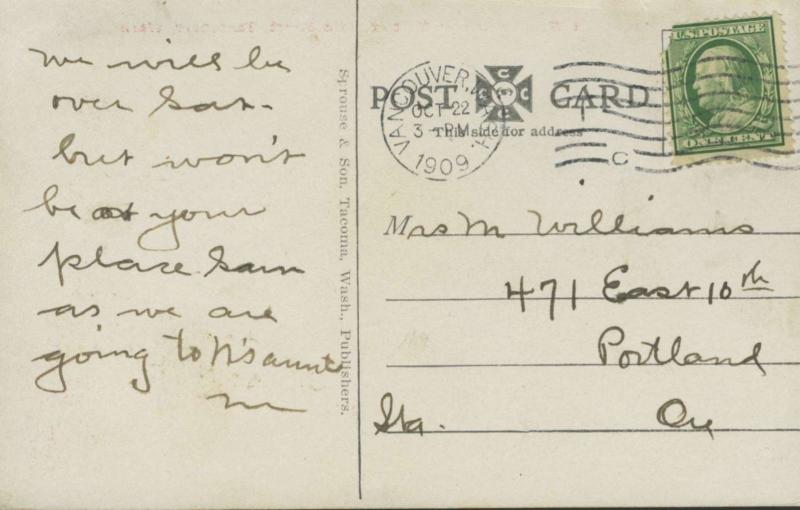 we will be
over Sat-
but won't
be at your
place Sam
as we are
going to N's aunts
M
Sprouse & Son, Tacoma, Wash., Publishers.
POST CARD
This side for address
VANCOUVER, WASH.
OCT 22
3 - PM
1909
C
U.S. POSTAGE
ONE CENT
Mrs M Williams
471 East 10th
Portland
Sta. Ore